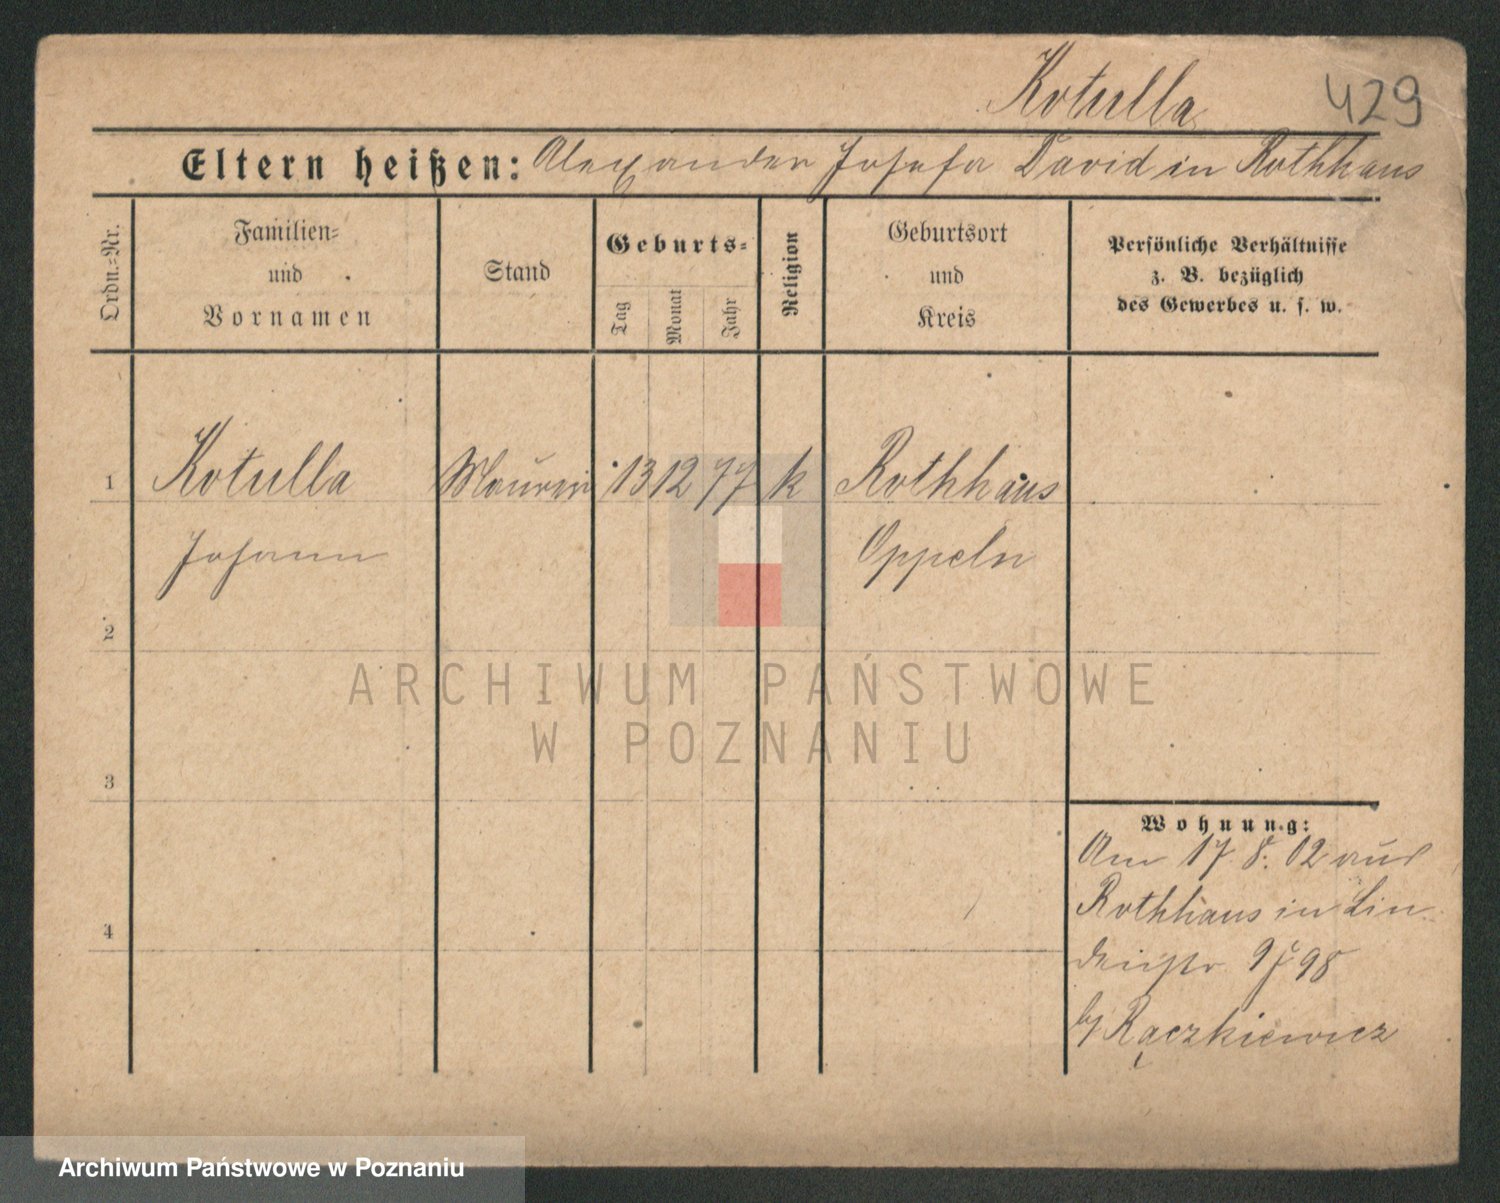 Kotulla 429
Eltern heißen: Alexander Josefa David in Rothhaus
Ordn.-Nr.
Familien-
und
Vornamen
Stand
Geburts-
Tag
Monat
Jahr
Religion
Geburtsort
und
Kreis
Persönliche Verhältnisse
z. B. bezüglich
des Gewerbes u. s. w.
1 Kotulla Maurer 13 12 77 k Rothhaus
Johann Oppeln
2
ARCHIWUM PAŃSTWOWE
W POZNANIU
3
Wohnung:
Am 17. 8. 02 aus
Rothhaus in Lin
4
98
b/ Rączkiewicz
Archiwum Państwowe w Poznaniu